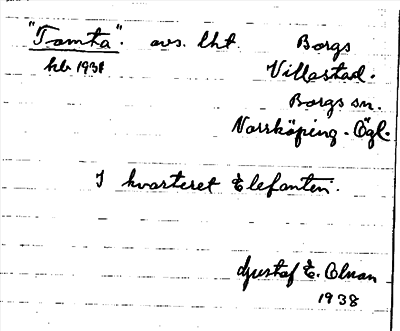 "Tomta". avs. lht. Borgs
hb. 1938 Villastad.
Borgs sn.
Norrköping. Ögl.
I kvarteret Elefanten.
Gustaf E. Olman
1938